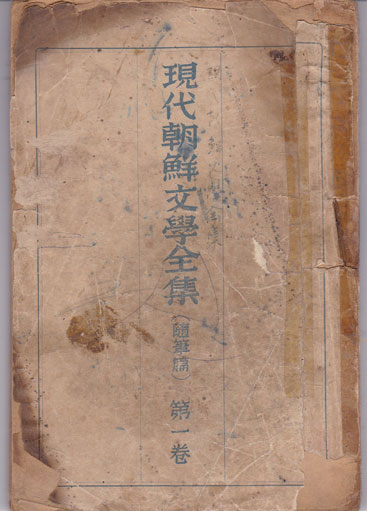 現代朝鮮文學全集(隨筆篇) 第一卷